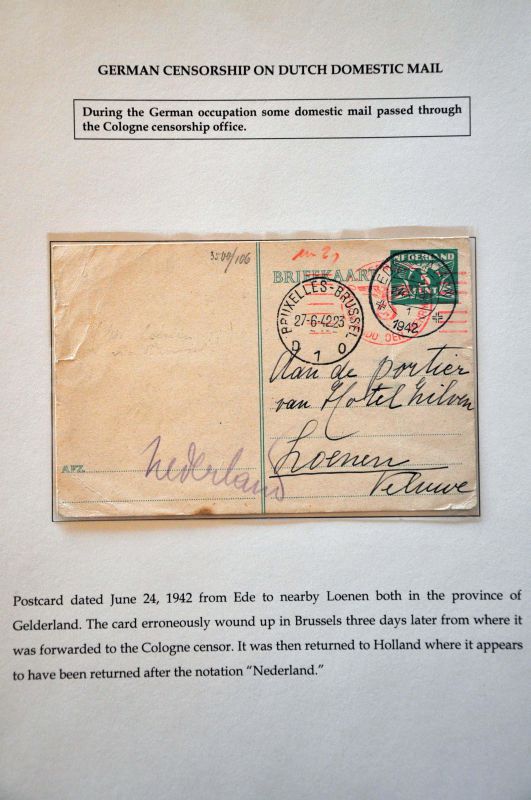 GERMAN CENSORSHIP ON DUTCH DOMESTIC MAIL
During the German occupation some domestic mail passed through
the Cologne censorship office.
3500/106
BRIEFKAART
NEDERLAND
5
CENT
BRUXELLES-BRUSSEL
27-6-4223
C 1 O
1942
Aan de portier
van Hotel Zilven
Loenen
Veluwe
AFZ.
Nederland
Postcard dated June 24, 1942 from Ede to nearby Loenen both in the province of
Gelderland. The card erroneously wound up in Brussels three days later from where it
was forwarded to the Cologne censor. It was then returned to Holland where it appears
to have been returned after the notation “Nederland.”